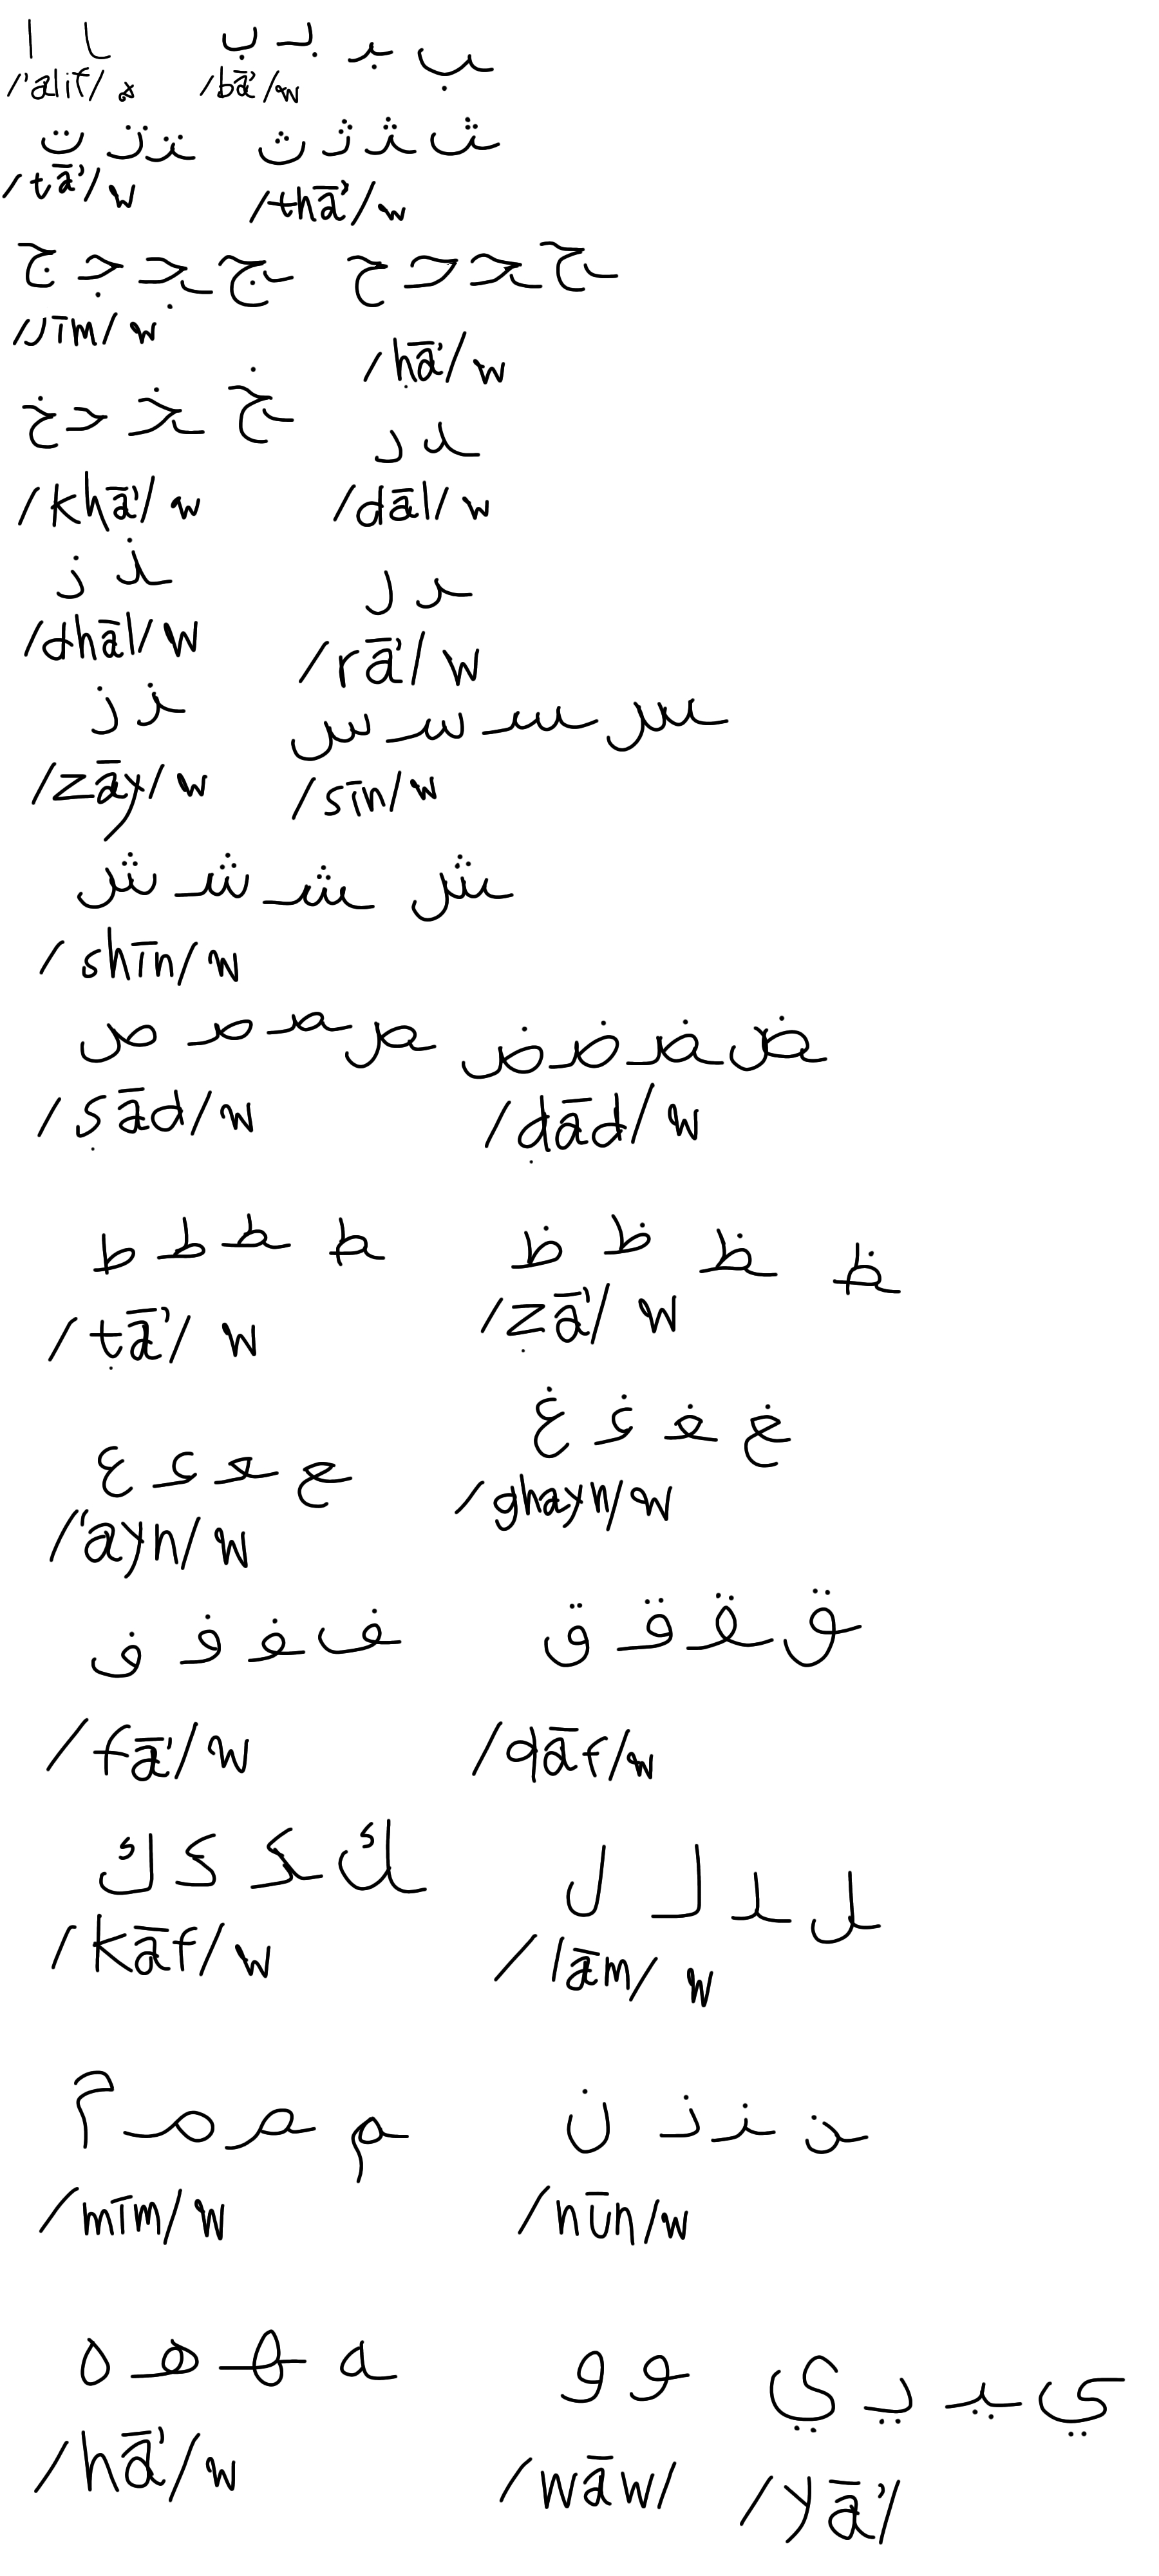 ا ـا ب بـ ـبـ ـب
/'alif/ x /bā'/ w
ت تـ ـتـ ث ثـ ـثـ ـث
/tā'/ w /thā'/ w
ج جـ ـجـ ـج ح حـ ـحـ ـح
/jīm/ w /ḥā'/ w
خ خـ ـخـ ـخ د ـد
/khā'/ w /dāl/ w
ذ ـذ ر ـر
/dhāl/ w /rā'/ w
ز ـز س سـ ـسـ ـس
/zāy/ w /sīn/ w
ش شـ ـشـ ـش
/shīn/ w
ص صـ ـصـ ـص ض ضـ ـضـ ـض
/ṣād/ w /ḍād/ w
ط طـ ـطـ ـط ظ ظـ ـظـ ـظ
/ṭā'/ w /ẓā'/ w
ع عـ ـعـ ـع غ غـ ـغـ ـغ
/'ayn/ w /ghayn/ w
ف فـ ـفـ ـف ق قـ ـقـ ـق
/fā'/ w /qāf/ w
ك كـ ـكـ ـك ل لـ ـلـ ـل
/kāf/ w /lām/ w
م مـ ـمـ ـم ن نـ ـنـ ـن
/mīm/ w /nūn/ w
ه هـ ـهـ ـه و ـو ي يـ ـيـ ـي
/hā'/ w /wāw/ /yā'/